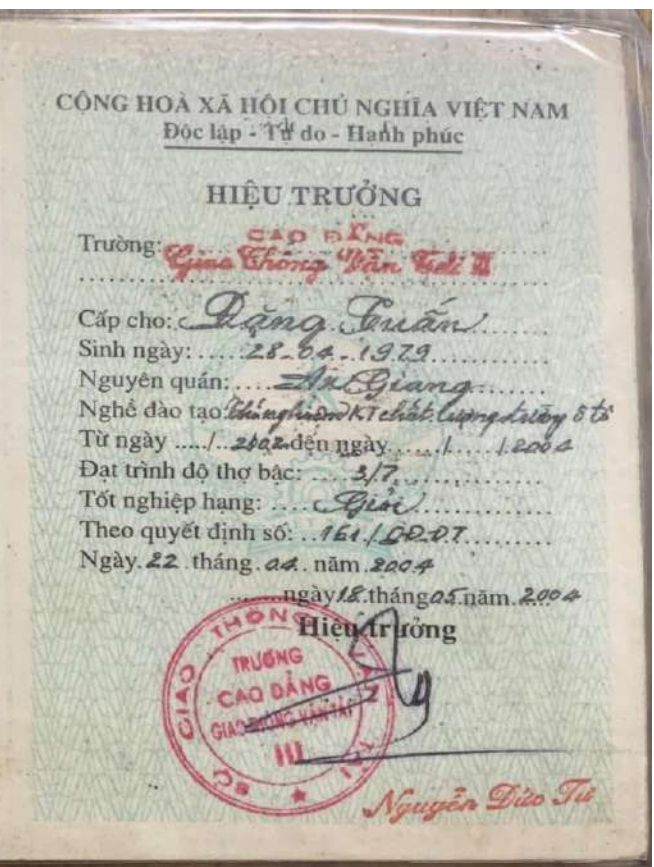 CỘNG HOÀ XÃ HỘI CHỦ NGHĨA VIỆT NAM
Độc lập - Tự do - Hạnh phúc
HIỆU TRƯỞNG
CAO ĐẲNG
Trường: Giao Thông Vận Tải III
Cấp cho: Đặng Tuấn
Sinh ngày: 28-04-1979
Nguyên quán: An Giang
Nghề đào tạo Thí nghiệm KT chất lượng đường ô tô
Từ ngày ...../. 2002 đến ngày ....../....../.2004
Đạt trình độ thợ bậc: 3/7
Tốt nghiệp hạng: Giỏi
Theo quyết định số: 161/QĐ-ĐT
Ngày 22 tháng 04 năm 2004
ngày 18 tháng 05 năm 2004
Hiệu trưởng
BỘ GIAO THÔNG VẬN TẢI
TRƯỜNG
CAO ĐẲNG
GIAO THÔNG VẬN TẢI
III
Nguyễn Đức Tư